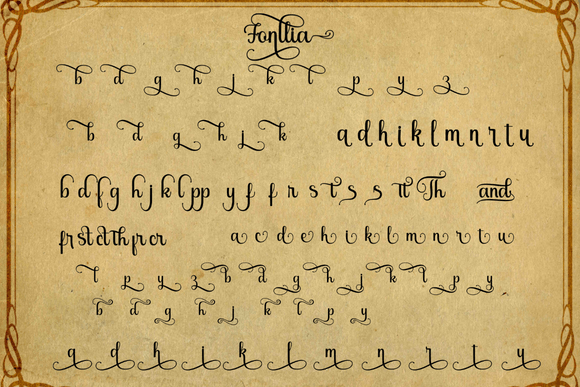 Fontlia
b d g h j k l p y z
b d g h j k a d h i k l m n r t u
b d f g h j k l p p y f f r s t s s tt Th and
fr st ct th fr or a c d e h i k l m n r t u
l p y z b d g h j k l p y
b d g h j k l p y
a d h i k l m n r t u